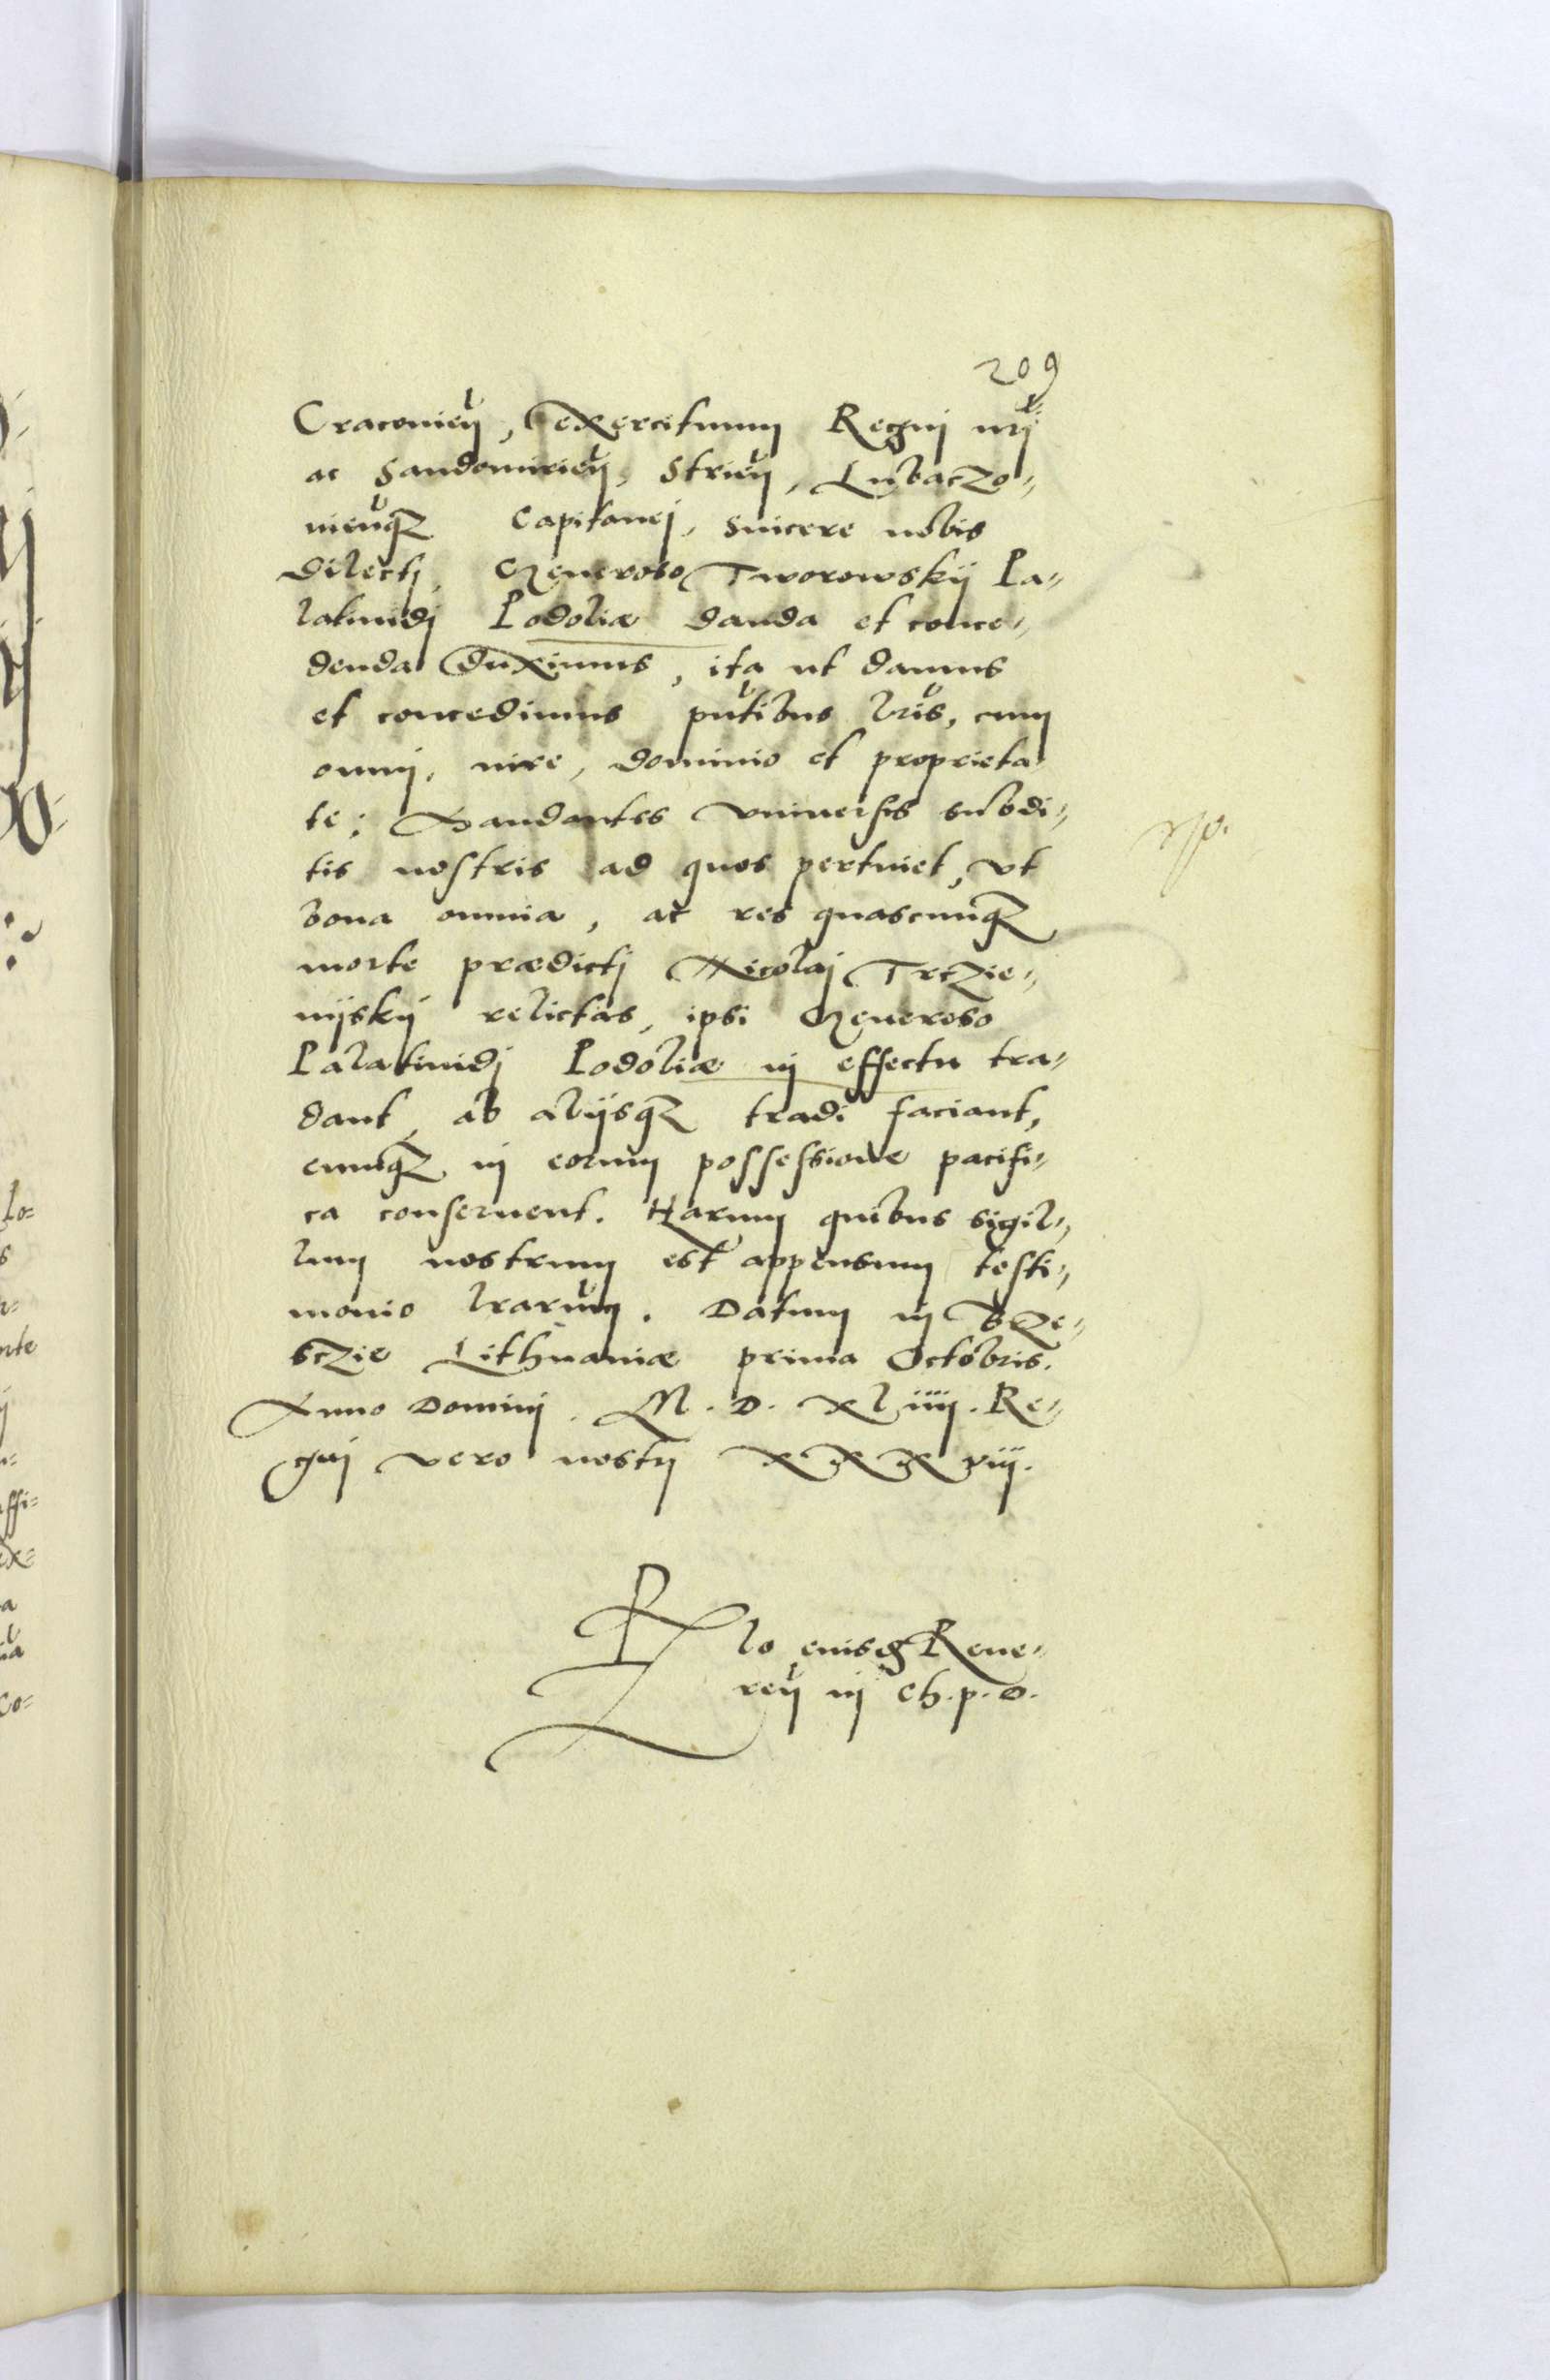 209
Craconień, exercituum Regni nrĩ
ac Sandomirień, Strień, Lubaczo=
nieńq3 Capitanej, sincere nobis
dilectj, Generoso Tworowskij Pa=
latinidj Podoliæ danda et conce=
denda duximus, ita ut damus
et concedimus pñtibus lrĩs, cum
omnj, iure, dominio et proprieta
te; Mandantes vniuersis subdi=
tis nostris ad quos pertinet, vt
bona omnia, ac res quascunq3
morte prædictj Nicolaj Trczie=
nijskij relictas, ipsi Generoso
Palatinidj Podoliæ in effectu tra=
dant, ab alijsq3 tradi faciant,
eumq3 in eorum possessione pacifi=
ca conseruent. Harum quibus sigil=
lum nostrum est appensum testi=
monio lrarũm. Datum in Brze=
sczie Lithuaniæ prima Octobris.
Anno Dominj. M. D. xliiij. Re=
gnj vero nostrj xxxviij.
R lo eiusdẽ Reue=
reñ in Ch. p. D.